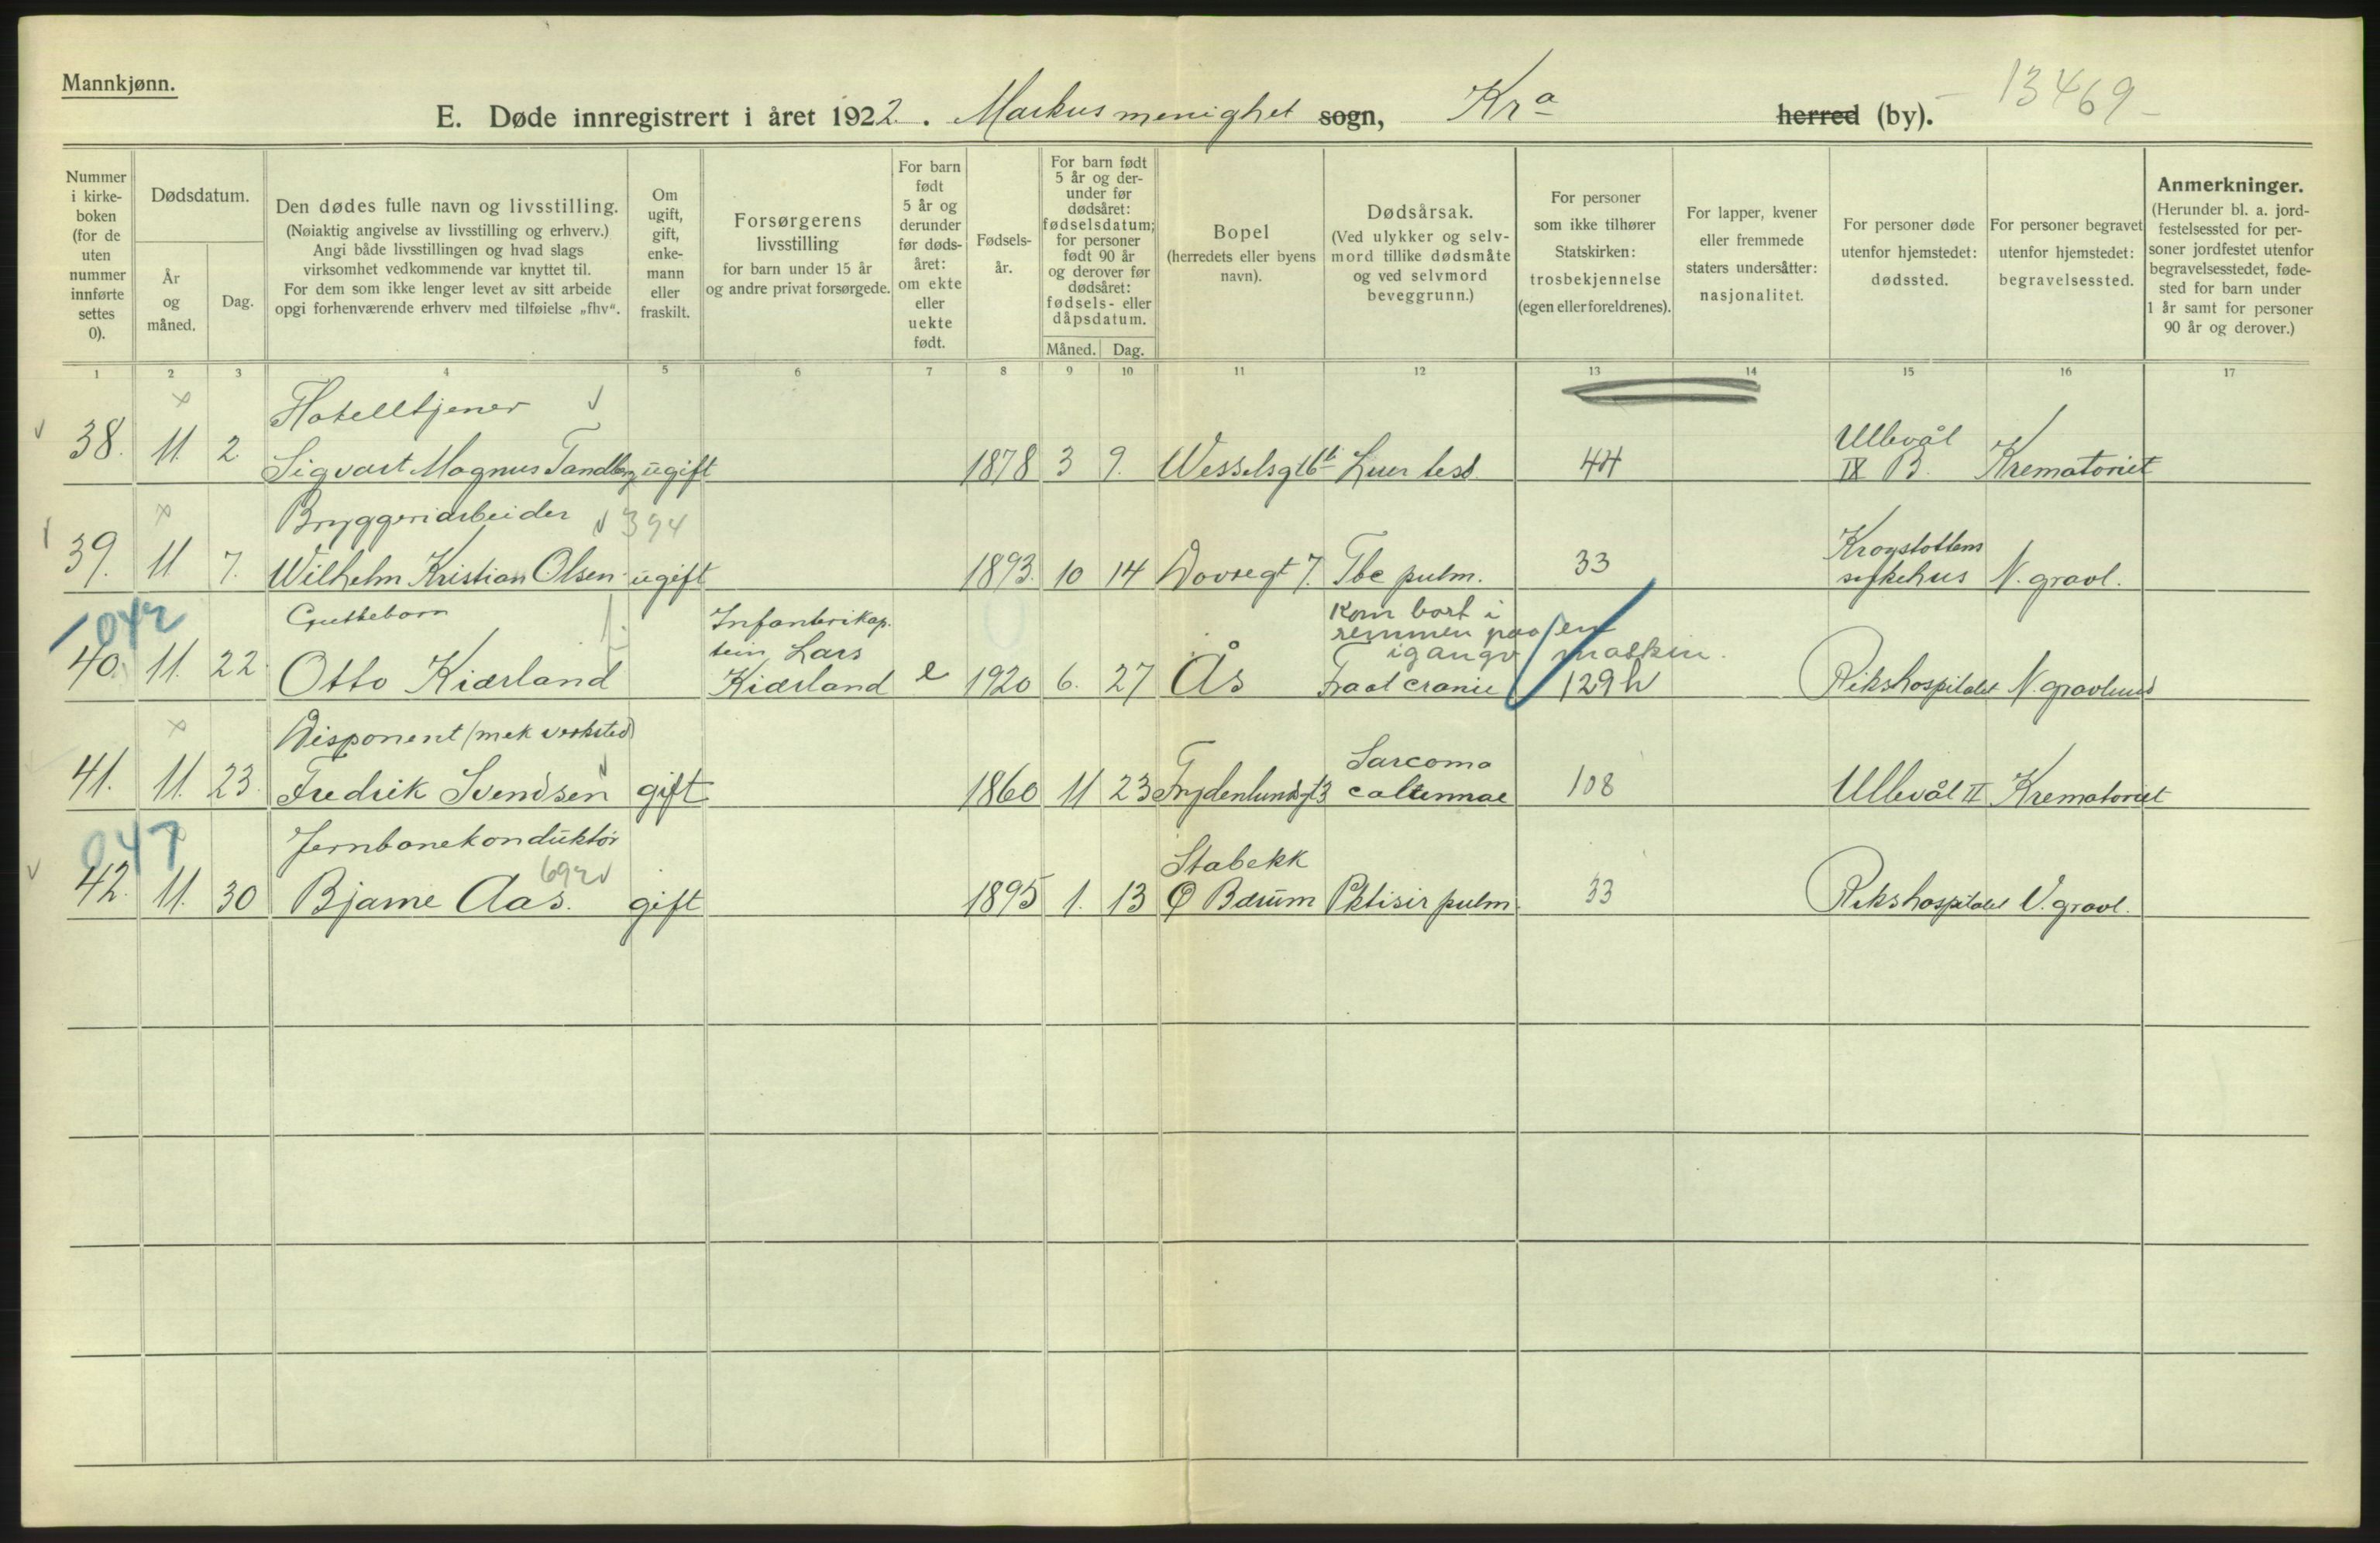 Mannkjønn.
E. Døde innregistrert i året 1922. Markus menighet sogn, Kra herred (by). 13469
Nummer i kirkeboken (for de uten nummer innførte settes 0).
Dødsdatum.
År og måned.
Dag.
Den dødes fulle navn og livsstilling.
(Nøiaktig angivelse av livsstilling og erhverv.)
Angi både livsstillingen og hvad slags
virksomhet vedkommende var knyttet til.
For dem som ikke lenger levet av sitt arbeide
opgi forhenværende erhverv med tilføielse „fhv“.
Om ugift, gift, enkemann eller fraskilt.
Forsørgerens livsstilling
for barn under 15 år
og andre privat forsørgede.
For barn født 5 år og derunder før dødsåret: om ekte eller uekte født.
Fødselsår.
For barn født 5 år og derunder før dødsåret: fødselsdatum; for personer født 90 år og derover før dødsåret: fødsels- eller dåpsdatum.
Måned. Dag.
Bopel
(herredets eller byens navn).
Dødsårsak.
(Ved ulykker og selvmord tillike dødsmåte og ved selvmord beveggrunn.)
For personer som ikke tilhører Statskirken: trosbekjennelse (egen eller foreldrenes).
For lapper, kvener eller fremmede staters undersåtter: nasjonalitet.
For personer døde utenfor hjemstedet: dødssted.
For personer begravet utenfor hjemstedet: begravelsessted.
Anmerkninger.
(Herunder bl. a. jordfestelsessted for personer jordfestet utenfor begravelsesstedet, fødested for barn under 1 år samt for personer 90 år og derover.)
1 2 3 4 5 6 7 8 9 10 11 12 13 14 15 16 17
Hotelltjener
38. 11. 2 Sigvart Magnus Tandberg ugift 1878 3 9. Wesselsgt 6 Luer tess. 44 Ullevål IX B. Krematoriet
Bryggeriarbeider 394
39. 11 7. Wilhelm Kristian Olsen ugift 1893. 10 14 Dovregt 7. Tbc pulm. 33 Krogstøttens sykehus N. gravl.
042
Guttebarn Infanterikaptein Lars Kom bort i remmen paa en igangv maskin.
40. 11. 22. Otto Kiærland Kiærland e 1920 6. 27 Ås Fract cranie 129h Rikshospitalet N. gravlund
Disponent (mek verksted)
41. 11. 23. Fredrik Svendsen gift 1860 11 23 Frydenlundsgt 3 Sarcoma 108 Ullevål II Krematoriet
047
Jernbanekonduktør 692 Stabekk
42. 11. 30 Bjarne Aas. gift 1895 1. 13 Ø Bærum Pktisir pulm. 33 Rikshospitalet V. gravl.